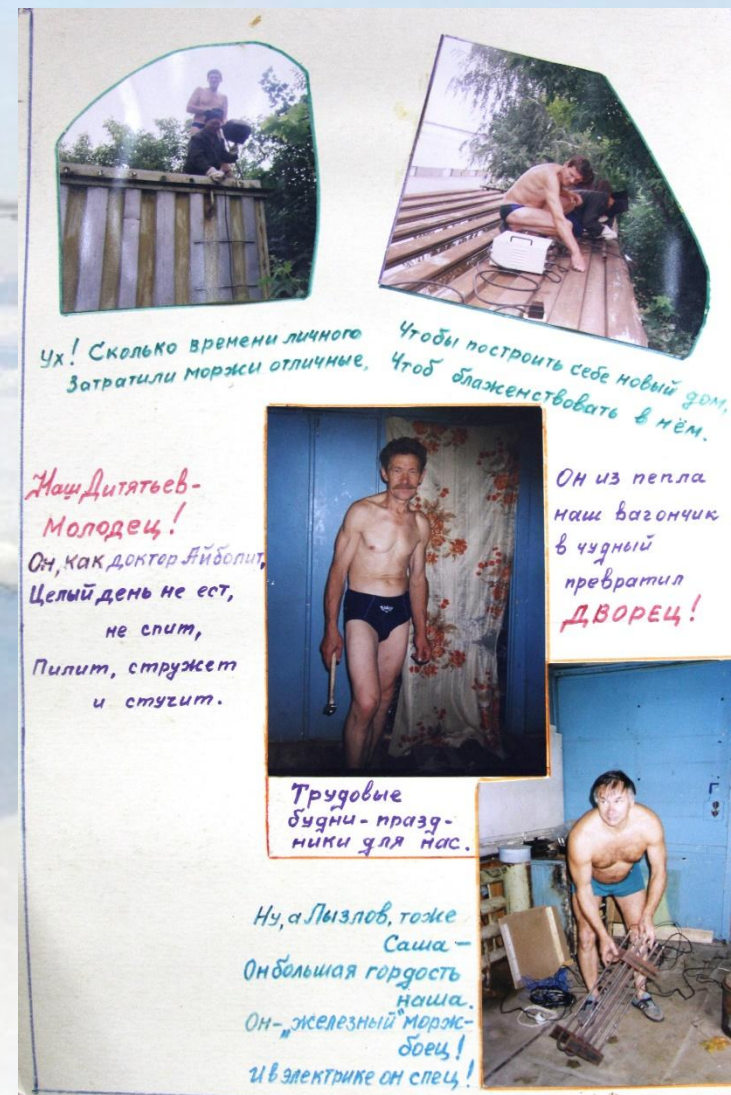 Ух! Сколько времени личного
Затратили моржи отличные,
Чтобы построить себе новый дом,
Чтоб блаженствовать в нём.
Наш Дитятьев-
Молодец!
Он, как доктор Айболит,
Целый день не ест,
не спит,
Пилит, стружет
и стучит.
Он из пепла
наш вагончик
в чудный
превратил
ДВОРЕЦ!
Трудовые
будни-празд-
ники для нас.
Ну, а Лызлов, тоже
Саша —
Он большая гордость
наша.
Он-„железный" морж-
боец!
И в электрике он спец!